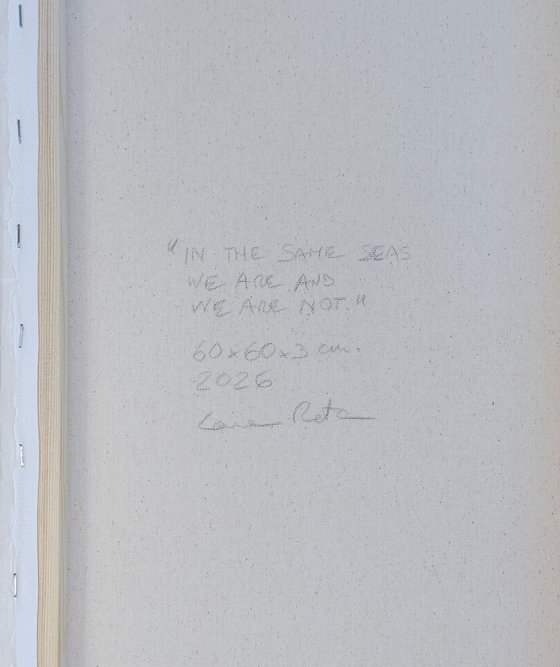 "IN THE SAME SEAS
WE ARE AND
WE ARE NOT."
60x60x3 cm.
2026